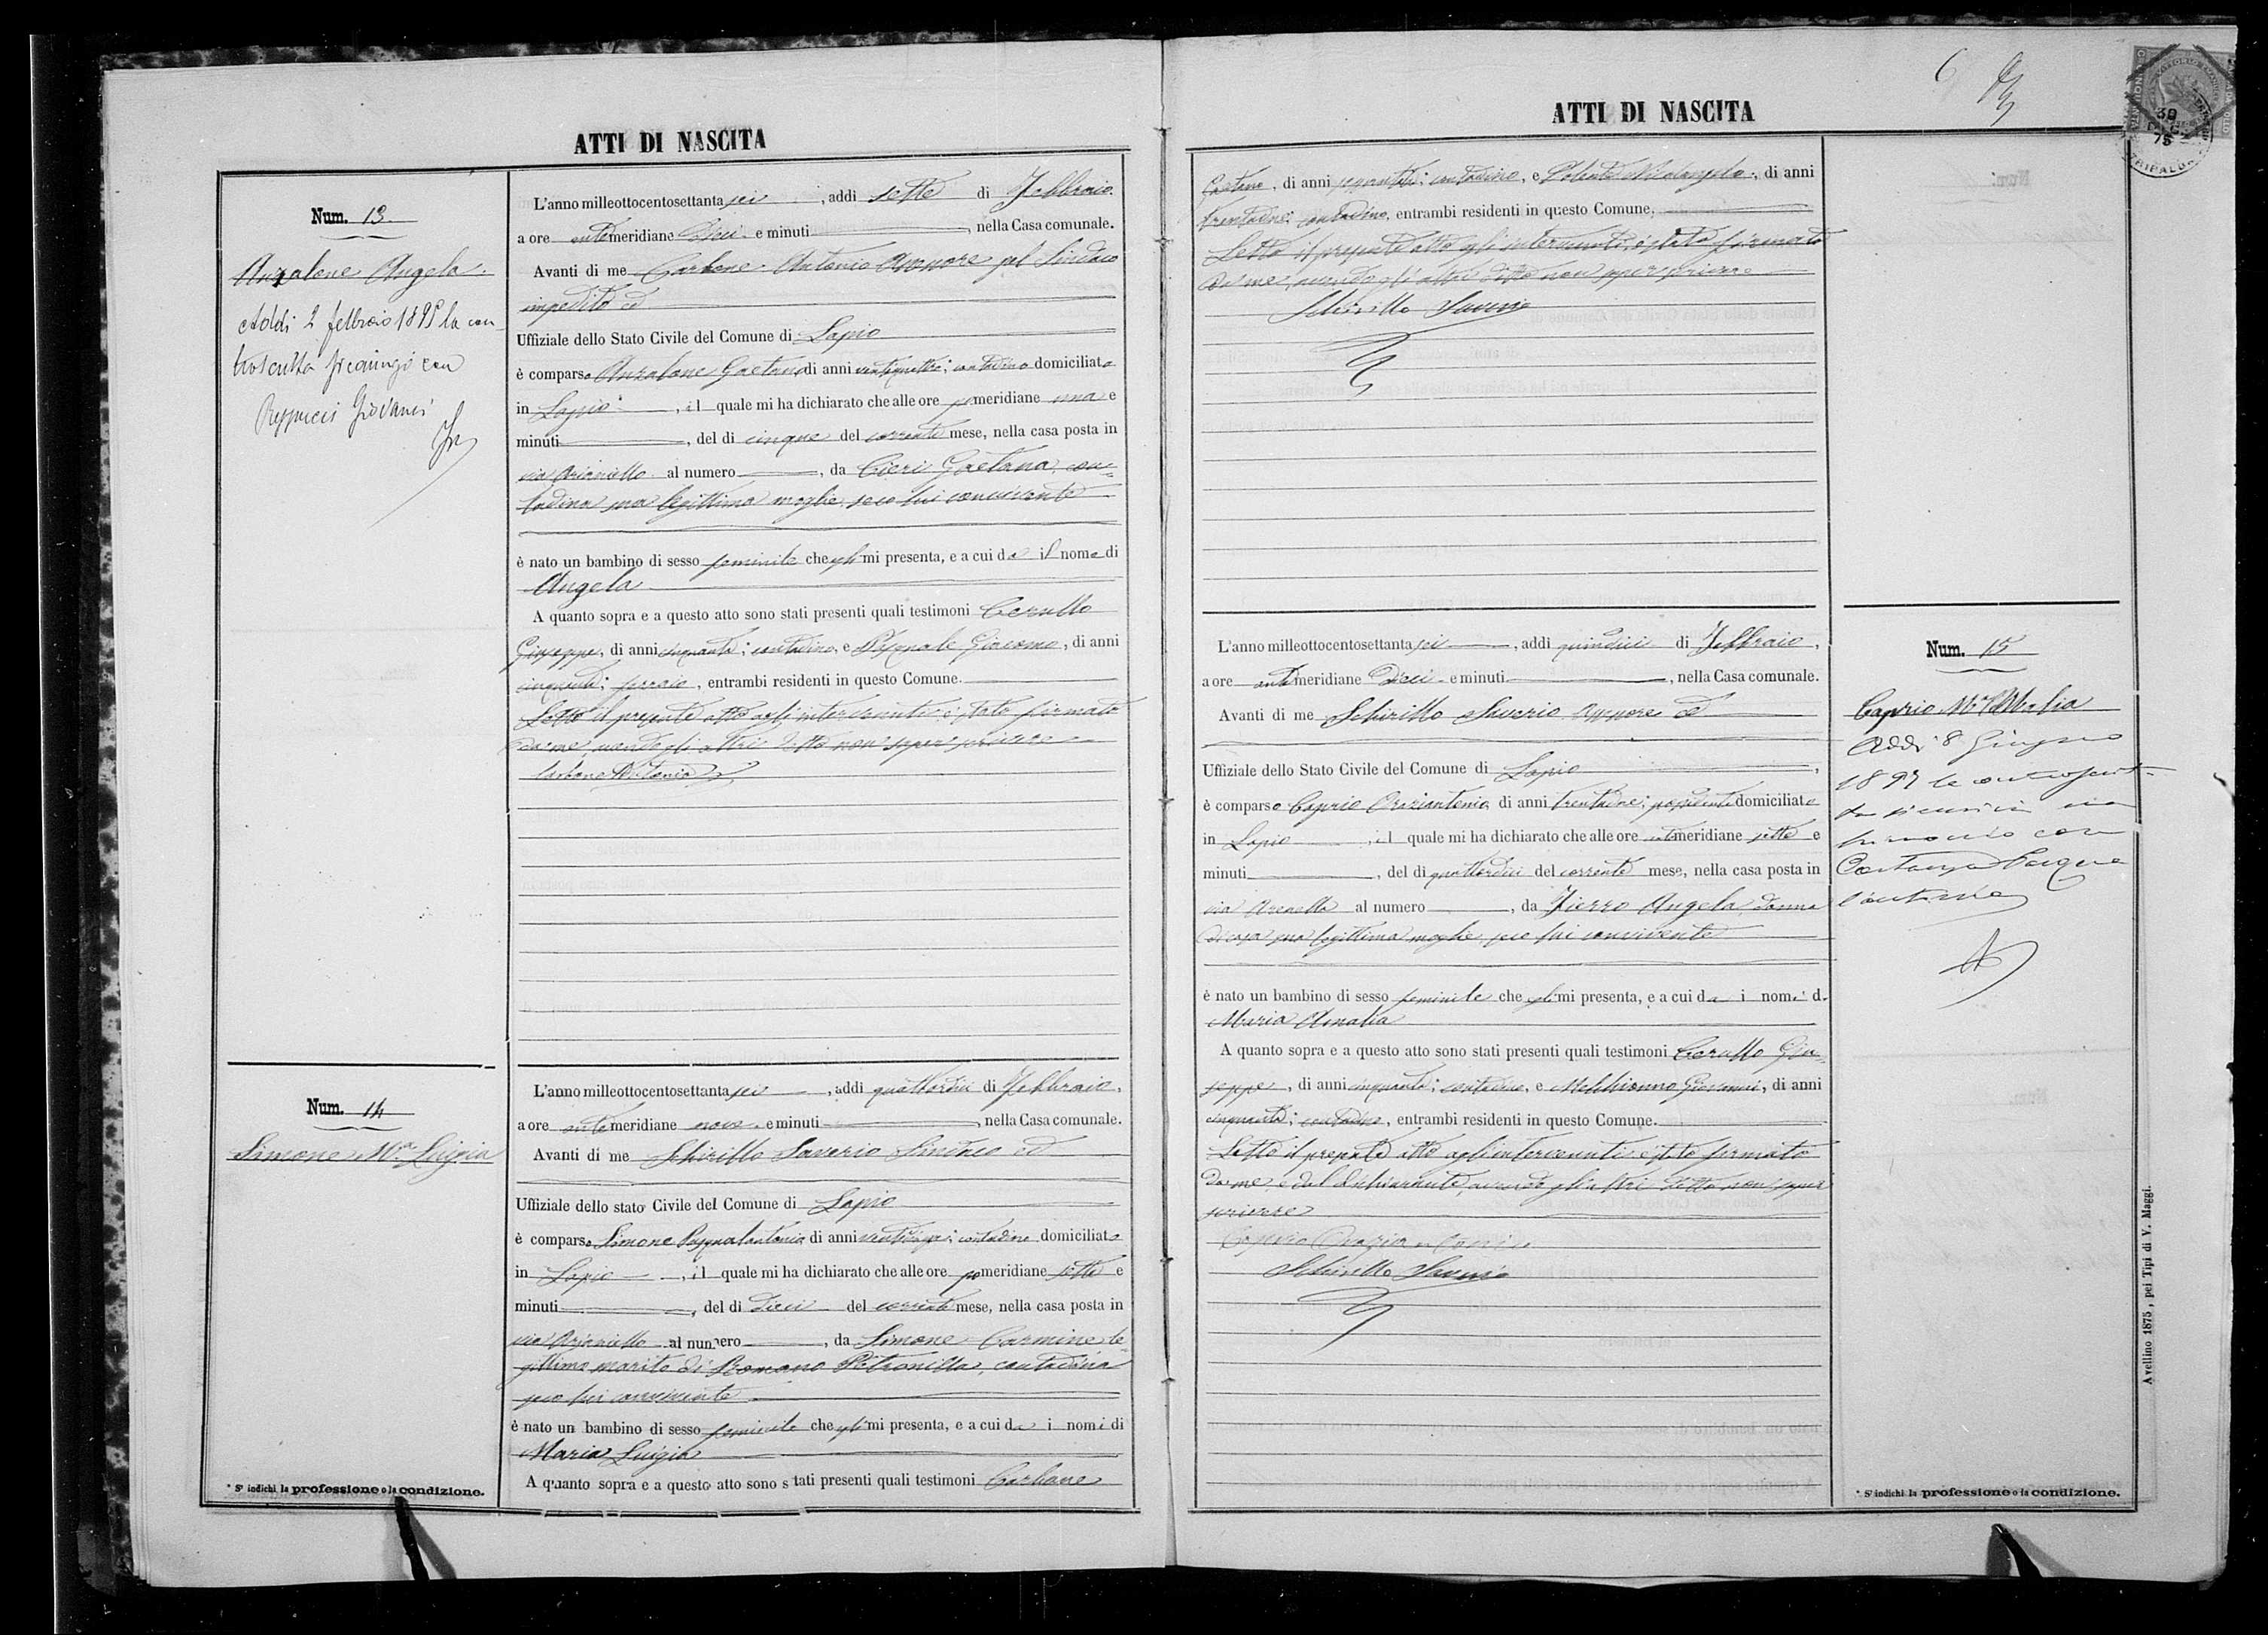 ATTI DI NASCITA
Num. 13
Anzalone Angela
Addi 2 febbraio 1895 la con
troscritta si coniugò con
Giovanni
L'anno milleottocentosettanta sei, addì sette di Febbraio
a ore antemeridiane dieci e minuti, nella Casa comunale.
Avanti di me Carbone Antonio Assessore pel Sindaco
impedito ed
Uffiziale dello Stato Civile del Comune di Lapio
è comparso Anzalone Gaetano, di anni ventiquattro; contadino domiciliato
in Lapio, il quale mi ha dichiarato che alle ore pomeridiane una e
minuti, del dì cinque del corrente mese, nella casa posta in
via Arianiello al numero, da Cieri Gaetana, con-
tadina sua legittima moglie, seco lui convivente
è nato un bambino di sesso feminile che egli mi presenta, e a cui dà il nome di
Angela
A quanto sopra e a questo atto sono stati presenti quali testimoni Cerullo
Giuseppe, di anni cinquanta; contadino, e Pasquale Giacomo, di anni
cinquanta; ferraio, entrambi residenti in questo Comune.
Letto il presente atto agli intervenuti è stato firmato
da me avendo gli altri detto non saper scrivere
Carbone Antonio
Num. 14
Simone Mª Luigia
L'anno milleottocentosettanta sei, addì quattordici di Febbraio,
a ore antemeridiane nove e minuti, nella Casa comunale.
Avanti di me Schirillo Saverio Sindaco ed
Uffiziale dello stato Civile del Comune di Lapio
è comparso Simone Pasqualantonio, di anni contadino domiciliato
in Lapio, il quale mi ha dichiarato che alle ore pomeridiane sette e
minuti, del dì dieci del corrente mese, nella casa posta in
via Arianiello al numero, da Simone Carmine le-
gittimo marito di Romano Petronilla, contadina
seco lui convivente
è nato un bambino di sesso feminile che egli mi presenta, e a cui dà i nomi di
Maria Luigia
A quanto sopra e a questo atto sono stati presenti quali testimoni Carbone
* S'indichi la professione o la condizione.
6
ATTI DI NASCITA
30
75
Gaetano, di anni contadino, e di anni
trentadue; contadino, entrambi residenti in questo Comune.
Letto il presente atto agli intervenuti, è stato firmato
da me, avendo gli altri detto non saper scrivere
Schirillo Saverio
L'anno milleottocentosettanta sei, addì quindici di Febbraio,
a ore antemeridiane dieci e minuti, nella Casa comunale.
Avanti di me Schirillo Saverio Assessore ed
Uffiziale dello Stato Civile del Comune di Lapio,
è comparso Caprio Oraziantonio, di anni trentadue; possidente domiciliato
in Lapio, il quale mi ha dichiarato che alle ore antemeridiane sette e
minuti, del dì quattordici del corrente mese, nella casa posta in
via Arenella al numero, da Fierro Angela, donna
di casa sua legittima moglie, seco lui convivente
è nato un bambino di sesso feminile che egli mi presenta, e a cui dà i nomi di
Maria Amalia
A quanto sopra e a questo atto sono stati presenti quali testimoni Cerullo Giu-
seppe, di anni cinquanta; contadino, e Melchionno Giovanni, di anni
cinquanta; contadino, entrambi residenti in questo Comune.
Letto il presente atto agli intervenuti è stato firmato
da me, e dal dichiarante, avendo gli altri detto non saper
scrivere
Caprio Oraziantonio
Schirillo Saverio
Num. 15
Caprio Mª Amalia
Addì 8 Giugno
con
* S'indichi la professione o la condizione.
Avellino 1875, pei Tipi di V. Maggi.